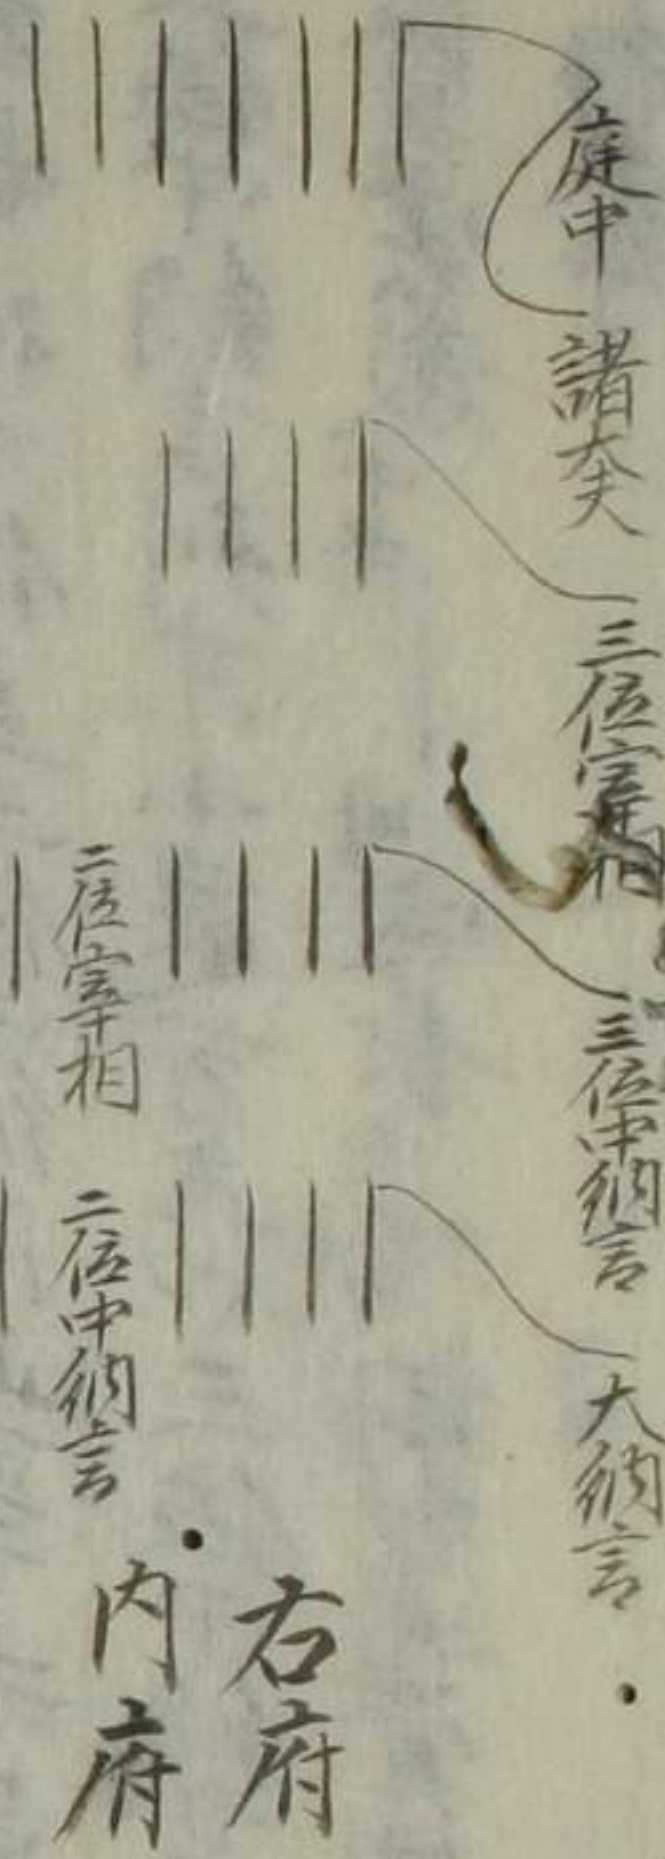 庭中
諸大夫
三位宰相
三位中納言
大納言
右府
二位宰相
二位中納言
内府